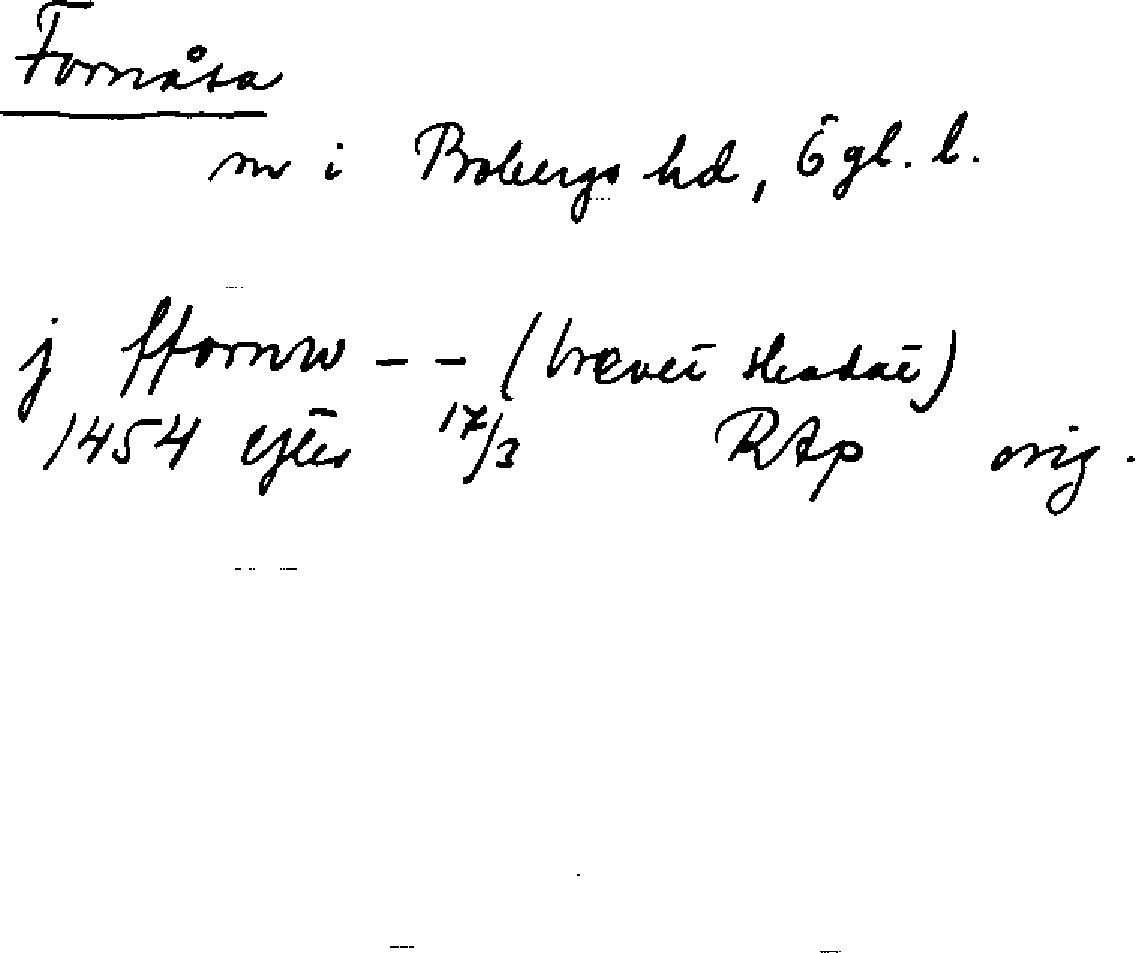 Fornåsa
sn i Bobergs hd, Ögl. l.
j ffornw - - (brevet skadat)
1454 efter 17/3 RAp orig.